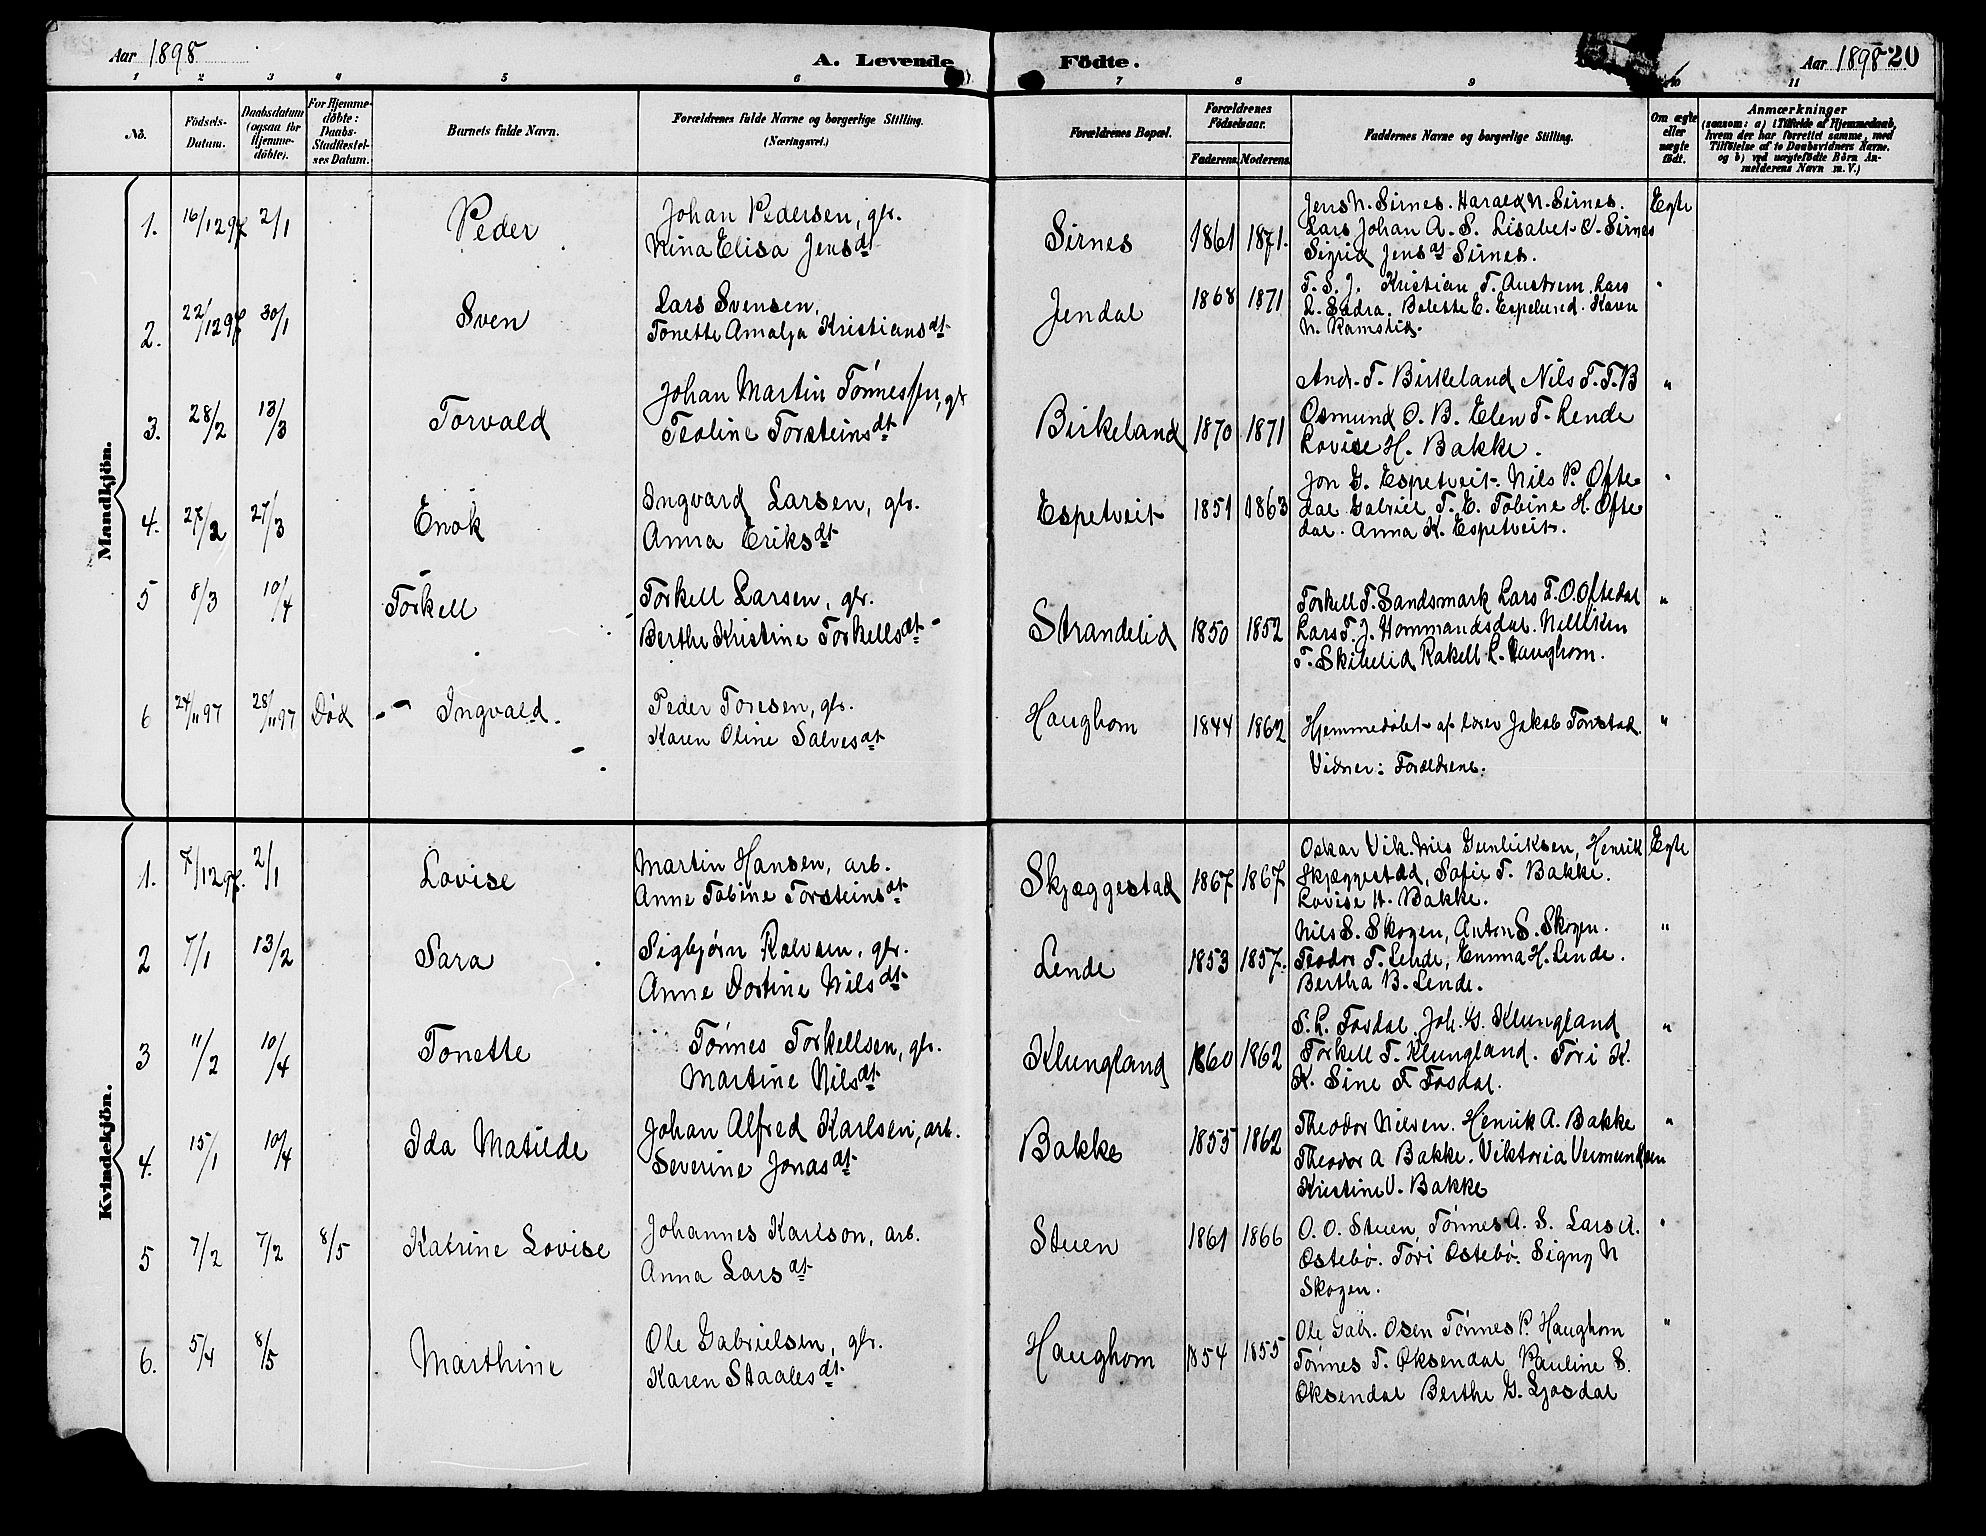 Aar 1898
A. Levende Födte.
Aar 1898
20
1 2 3 4 5 6 7 8 9 10 11
No.
Födsels-Datum.
Daabsdatum (ogsaa for Hjemme-döbte).
For Hjemme-döbte: Daabs-Stadfæstel-ses Datum.
Barnets fulde Navn.
Forældrenes fulde Navne og borgerlige Stilling.
(Næringsvei.)
Forældrenes Bopæl.
Forældrenes Födselsaar.
Faderens. Moderens.
Faddernes Navne og borgerlige Stilling.
Om ægte eller uægte født.
Anmærkninger
(saasom: a) i Tilfælde af Hjemmedaab,
hvem der har forrettet samme, med
Tilföielse af to Daabsvidners Navne.
og b) ved uægtefödte Börn An-
melderens Navn m. V.)
Mandkjön.
1. 16/12 97 2/1 Peder
Johan Pedersen, gbr.
Nina Elisa Jensdt
Sirnes 1861 1871.
Jens N. Sirnes. Harald N. Sirnes.
Lars Johan A. S. Lisabet O. Sirnes
Sigrid Jensdt Sirnes.
Egte
2. 22/12 97 30/1 Sven
Lars Svensen,
Tonette Amalja Kristiansdt
Jendal 1868 1871
T. S. J. Kristian T. Austrem. Lars
L. Sadra. Bolette E. Espelund. Karen
N. Ramslid.
"
3. 28/2 13/3 Torvald
Johan Martin Tönnessen, gbr
Teoline Torsteinsdt
Birkeland 1870 1871
Andr. T. Birkeland Nils T. T. B
Osmund O. B. Elen T. Lende
Lovise H. Bakke.
"
4. 27/2 27/3 Enok
Ingvard Larsen, gbr.
Anna Eriksdt
Espetveit 1851 1863
Jon G. Espetveit. Nils P. Ofte-
dal Gabriel T. E. Tobine H. Ofte-
dal. Anna K. Espetveit.
"
5 8/3 10/4 Torkell
Torkell Larsen, gbr.
Berthe Kristine Torkellsdt
Strandelid 1850 1852
Torkell T. Sandsmark Lars T. O. Oftedal
Lars T. J. Hommandsdal.
T. Skibelid Rakell L. Haughom.
"
6 24/11 97 28/11 97 Död Ingvald.
Peder Toresen, gbr.
Karen Oline Salvesdt
Haughom 1844 1862
Hjemmedøbt af lærer Jakob Tonstad.
Vidner: Forældrene.
"
Kvindekjön.
1. 7/12 97. 2/1 Lovise
Martin Hansen, arb.
Anne Tobine Torsteinsdt
Skjæggestad 1867 1867
Oskar Vik. Nils Gunleiksen, Henrik
Skjæggestad, Sofie T. Bakke.
Lovise H. Bakke.
Egte
2 7/1 13/2 Sara
Sigbjørn Rolvsen, gbr.
Anne Dortine Nilsdt
Lende 1853 1857.
Nils S. Skogen, Anton S. Skogen.
Teodor T. Lende, Emma H. Lende.
Bertha B. Lende.
"
3 11/2 10/4 Tonette
Tönnes Torkellsen, gbr.
Martine Nilsdt
Klungland 1860 1862
S. L. Fosdal. Joh. G. Klungland
Torkell T. Klungland. Tori K.
K. Sine T Fosdal.
"
4. 15/1 10/4 Ida Matilde
Johan Alfred Karlsen, arb.
Severine Jonasdt
Bakke 1855 1862
Theodor Nilsen. Henrik A. Bakke
Theodor A Bakke. Viktoria Vermundsen
Kristine V. Bakke
"
5 7/2 7/2 8/5 Katrine Lovise
Johannes Karlson, arb.
Anna Larsdt
Stuen 1861 1866
O. O. Stuen, Tönnes A. S. Lars A.
Østebö. Tori Østebö. Signy N
Skogen.
"
6. 5/4 8/5 Marthine
Ole Gabrielsen, gbr.
Karen Staalesdt
Haughom 1854 1855
Ole Gabr. Osen Tönnes P. Haughom
Tönnes T. Øksendal Pauline S.
Øksendal Berthe G. Ljosdal
"